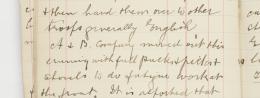 & then hand them over to other
troops generally English
A & B. Company moved out this
evening with full packs & picket
shovels to do fatigue work at
the front. It is reported that